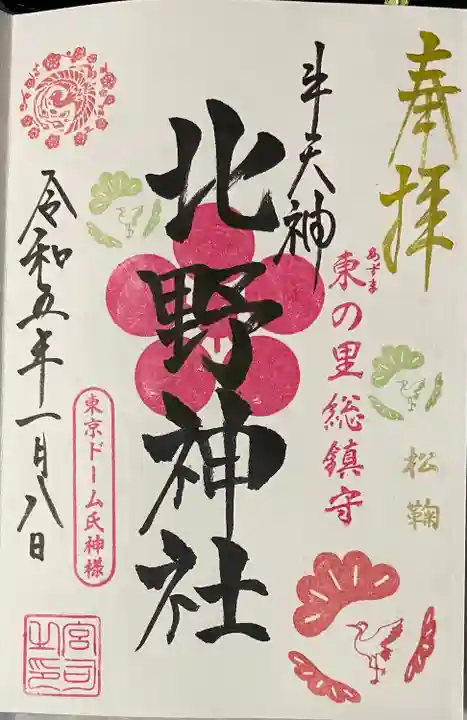 奉拝
松鞠
あずま
東の里総鎮守
牛天神
北野神社
東京ドーム氏神様
令和五年一月八日
宮司之印